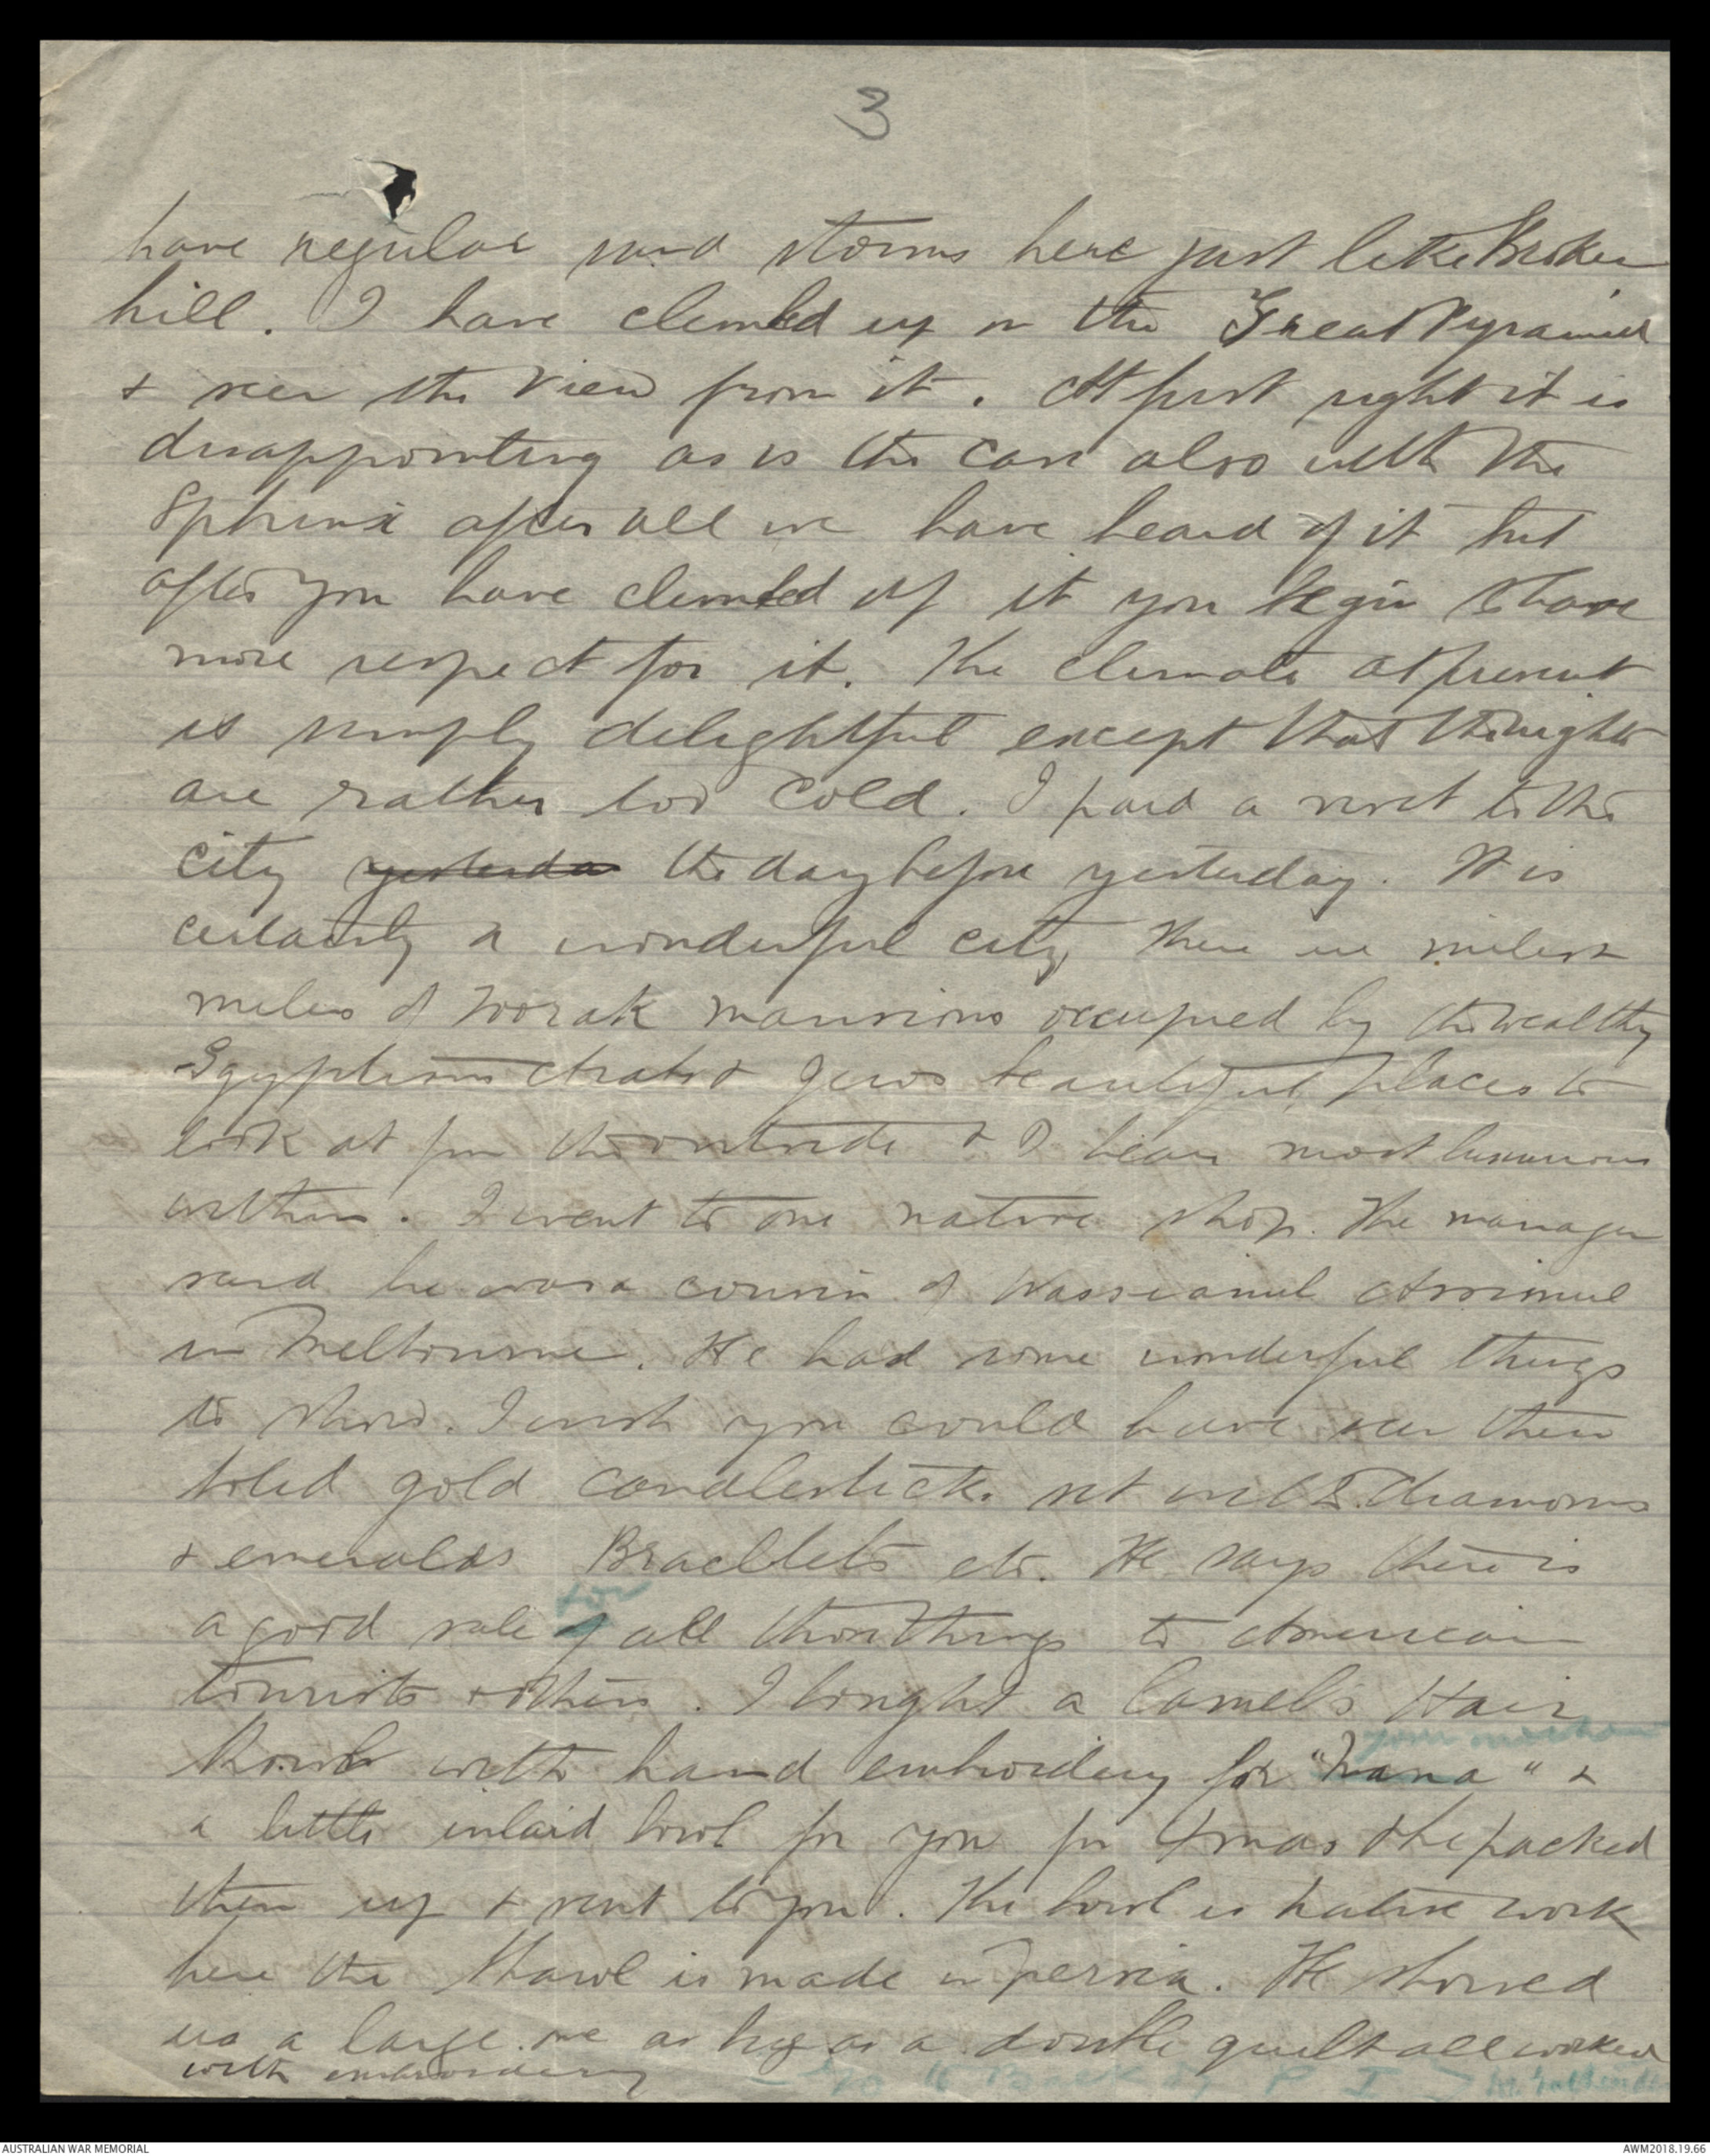 3
have regular sand storms here just like Broken
hill. I have climbed up on the Great Pyramid
& seen the view from it. At first sight it is
disappointing as is the case also with the
Sphinx after all we have heard of it but
after you have climbed up it you begin to have
more respect for it. The climate at present
is simply delightful except that the nights
are rather too cold. I paid a visit to the
city yesterda the day before yesterday. It is
certainly a wonderful city, there are miles &
miles of Toorak mansions occupied by the wealthy
Egyptians Arabs & Jews beautiful places to
look at from the outside & I hear most luxurious
within. I went to one native shop. The manager
said he was a cousin of Wassiamul Assimul
in Melbourne. He had some wonderful things
to show. I wish you could have seen them
solid gold candlesticks set with diamonds
& emeralds Bracelets etc. He says there is
for
a good sale of all those things to American
tourists & others. I bought a Camels Hair
your mother
Shawl with hand embroidery for "Nana" &
a little inlaid bowl for you for Xmas & he packed
them up & sent to you. The bowl is native work
here the Shawl is made in Persia. He showed
us a large one as big as a double quilt all worked
with embroidery